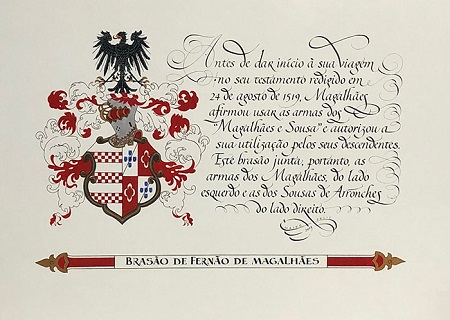 Antes de dar início à sua viagem
no seu testamento redigido en
24 de agosto de 1519, Magalhães
afirmou usar as armas dos
"Magalhães e Sousa" e autorizou a
sua utilização pelos seus descendentes.
Este brasão junta, portanto, as
armas dos Magalhães, do lado
esquerdo e as dos Sousas de Arronches
do lado direito.
BRASÃO DE FERNÃO DE MAGALHÃES